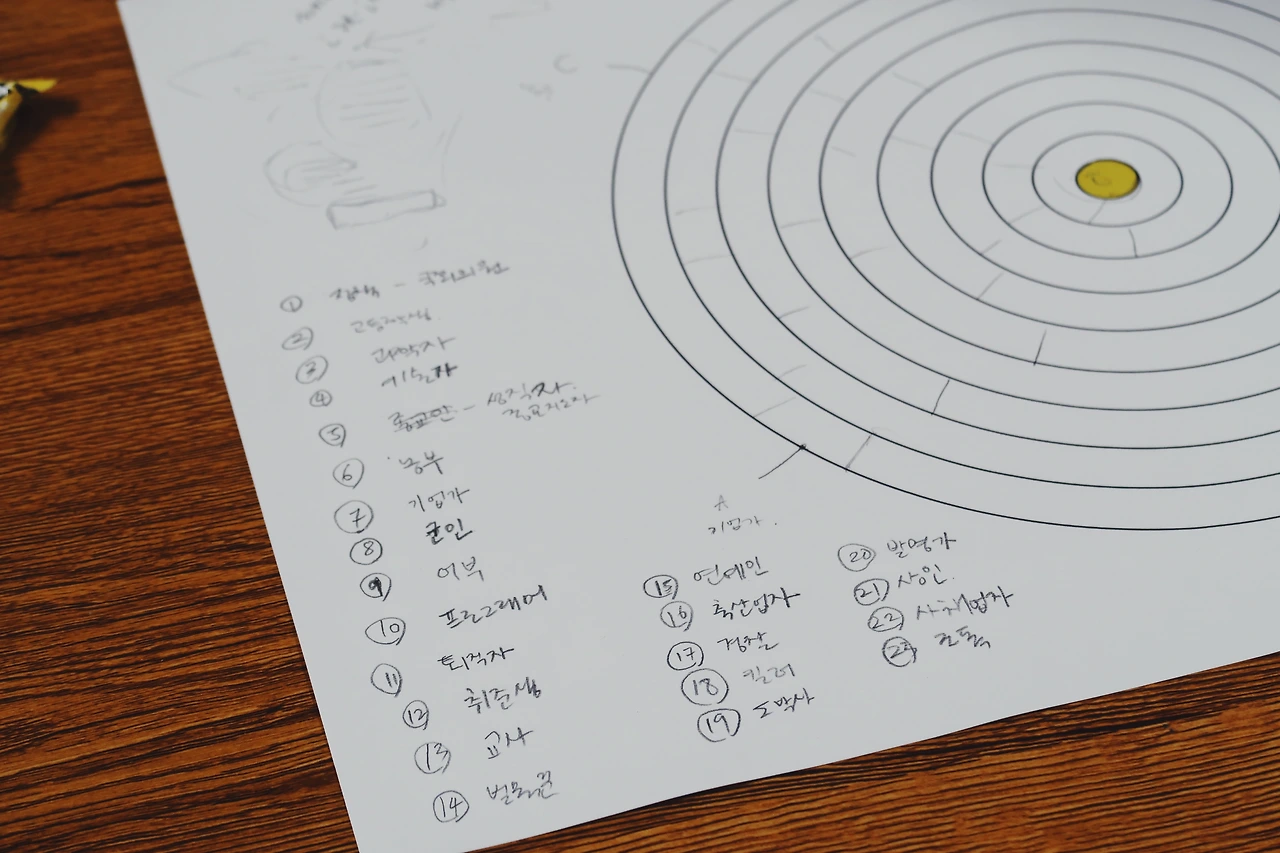 ① 정책 - 국회의원
② 고등학생.
③ 과학자
④ 기술자
⑤ 종교인 - 성직자.
종교지도자
⑥ 농부
⑦ 기업가
⑧ 군인
⑨ 어부
⑩ 프로그래머
⑪ 퇴직자
⑫ 취준생
⑬ 교사
⑭ 벌목꾼
A
기업가.
⑮ 연예인
⑯ 축산업자
⑰ 경찰
⑱ 킬러
⑲ 도박사
⑳ 발명가
㉑ 상인.
㉒ 사채업자
㉓
C